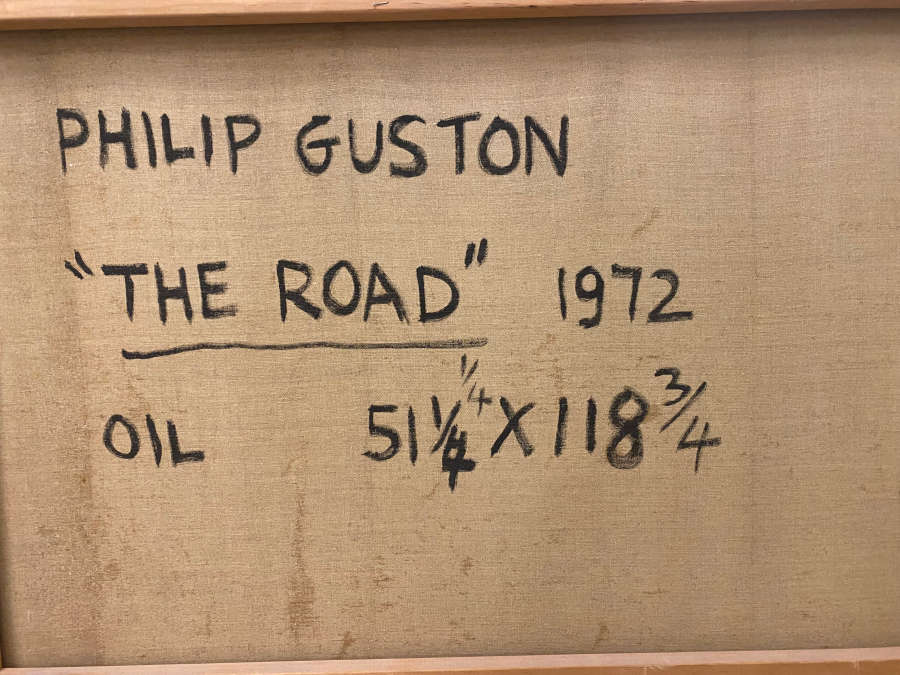 PHILIP GUSTON
"THE ROAD" 1972
OIL 51 1/4 1/4 X 118 3/4